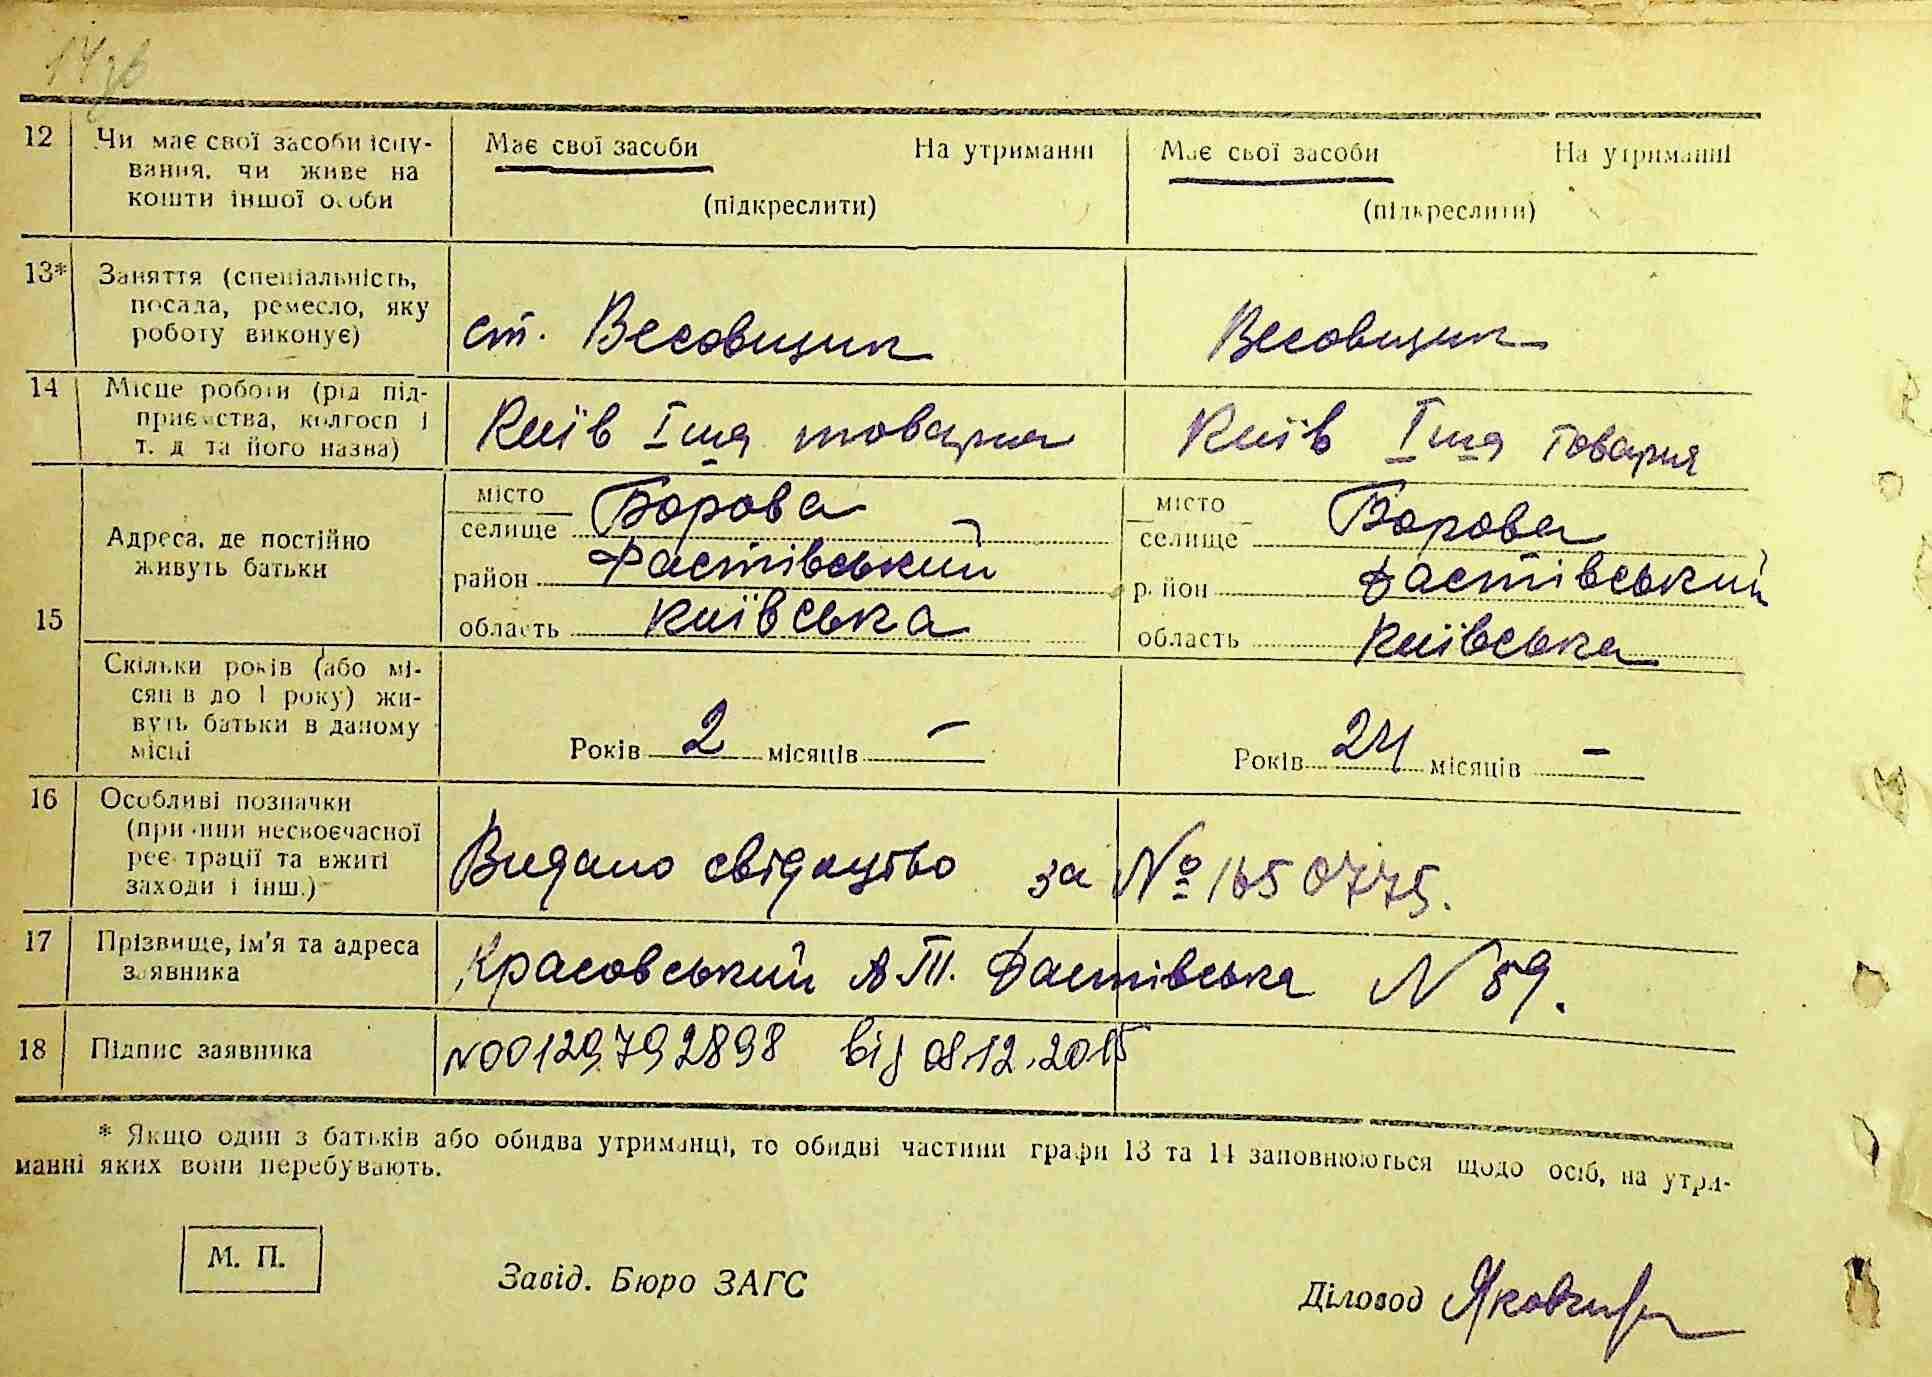 14зв
12 Чи має свої засоби існу- Має свої засоби На утриманні Має свої засоби На утриманні
вання, чи живе на
кошти іншої особи (підкреслити) (підкреслити)
13* Заняття (спеціальність,
посада, ремесло, яку
роботу виконує) ст. Весовщик Весовщик
14 Місце роботи (рід під-
приємства, колгосп і Київ Іша товарна Київ Іша Товарня
т. д та його назва)
15 Адреса, де постійно
живуть батьки
місто
селище Борова
район Фастівський
область Київська
місто
селище Борова
район Фастівський
область Київська
Скільки років (або мі-
сяців до 1 року) жи-
вуть батьки в даному
місці Років 2 місяців — Років 24 місяців —
16 Особливі позначки
(причини несвоєчасної
реєстрації та вжиті Видано свідоцтво за № 1650775.
заходи і інш.)
17 Прізвище, ім'я та адреса
заявника Красовський А П. Фастівська N 59.
18 Підпис заявника N00129792898 від 08.12.2015
* Якщо один з батьків або обидва утриманці, то обидві частини графи 13 та 14 заповнюються щодо осіб, на утри-
манні яких вони перебувають.
М. П.
Завід. Бюро ЗАГС
Діловод